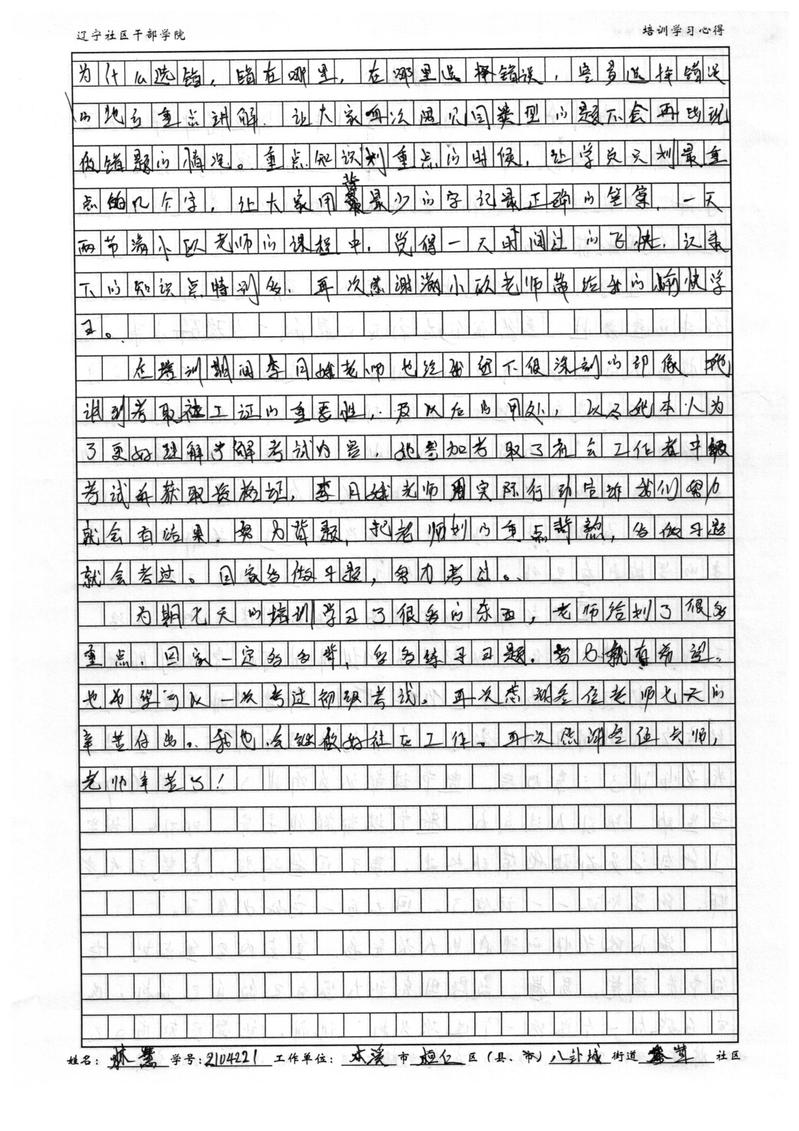 辽宁社区干部学院 培训学习心得
为什么选错，错在哪里，在哪里选择错误，容易选择错误
的地方重点讲解，让大家再次遇见同类型的题不会再出现
做错题的情况。重点知识划重点的时候，让学员只划最重
点的几个字，让大家用背最少的字记最正确的答案，一天
两节满小欧老师的课程中，觉得一天时间过的飞快，记录
下的知识点特别多，再次感谢满小欧老师带给我的愉快学
习。
在培训期间李月娥老师也给我留下很深刻的印像，她
讲到考取社工证的重要性，及以后的用处，以及她本人为
了更好理解了解考试内容，她参加考取了社会工作者中级
考试并获取资格证，李月娥老师用实际行动告诉我们努力
就会有结果，努力背题，把老师划的重点背熟，多做习题
就会考过。回家多做习题，努力考过。
为期七天的培训学习了很多的东西，老师给划了很多
重点，回家一定多多背，多多练习习题，努力就有希望，
也希望可以一次考过初级考试。再次感谢各位老师七天的
辛苦付出。我也会继续做好社区工作。再次感谢各位老师，
老师辛苦了！
姓名： 学号:2104221 工作单位： 本溪 市 桓仁 区（县、市）八卦城 街道 社区